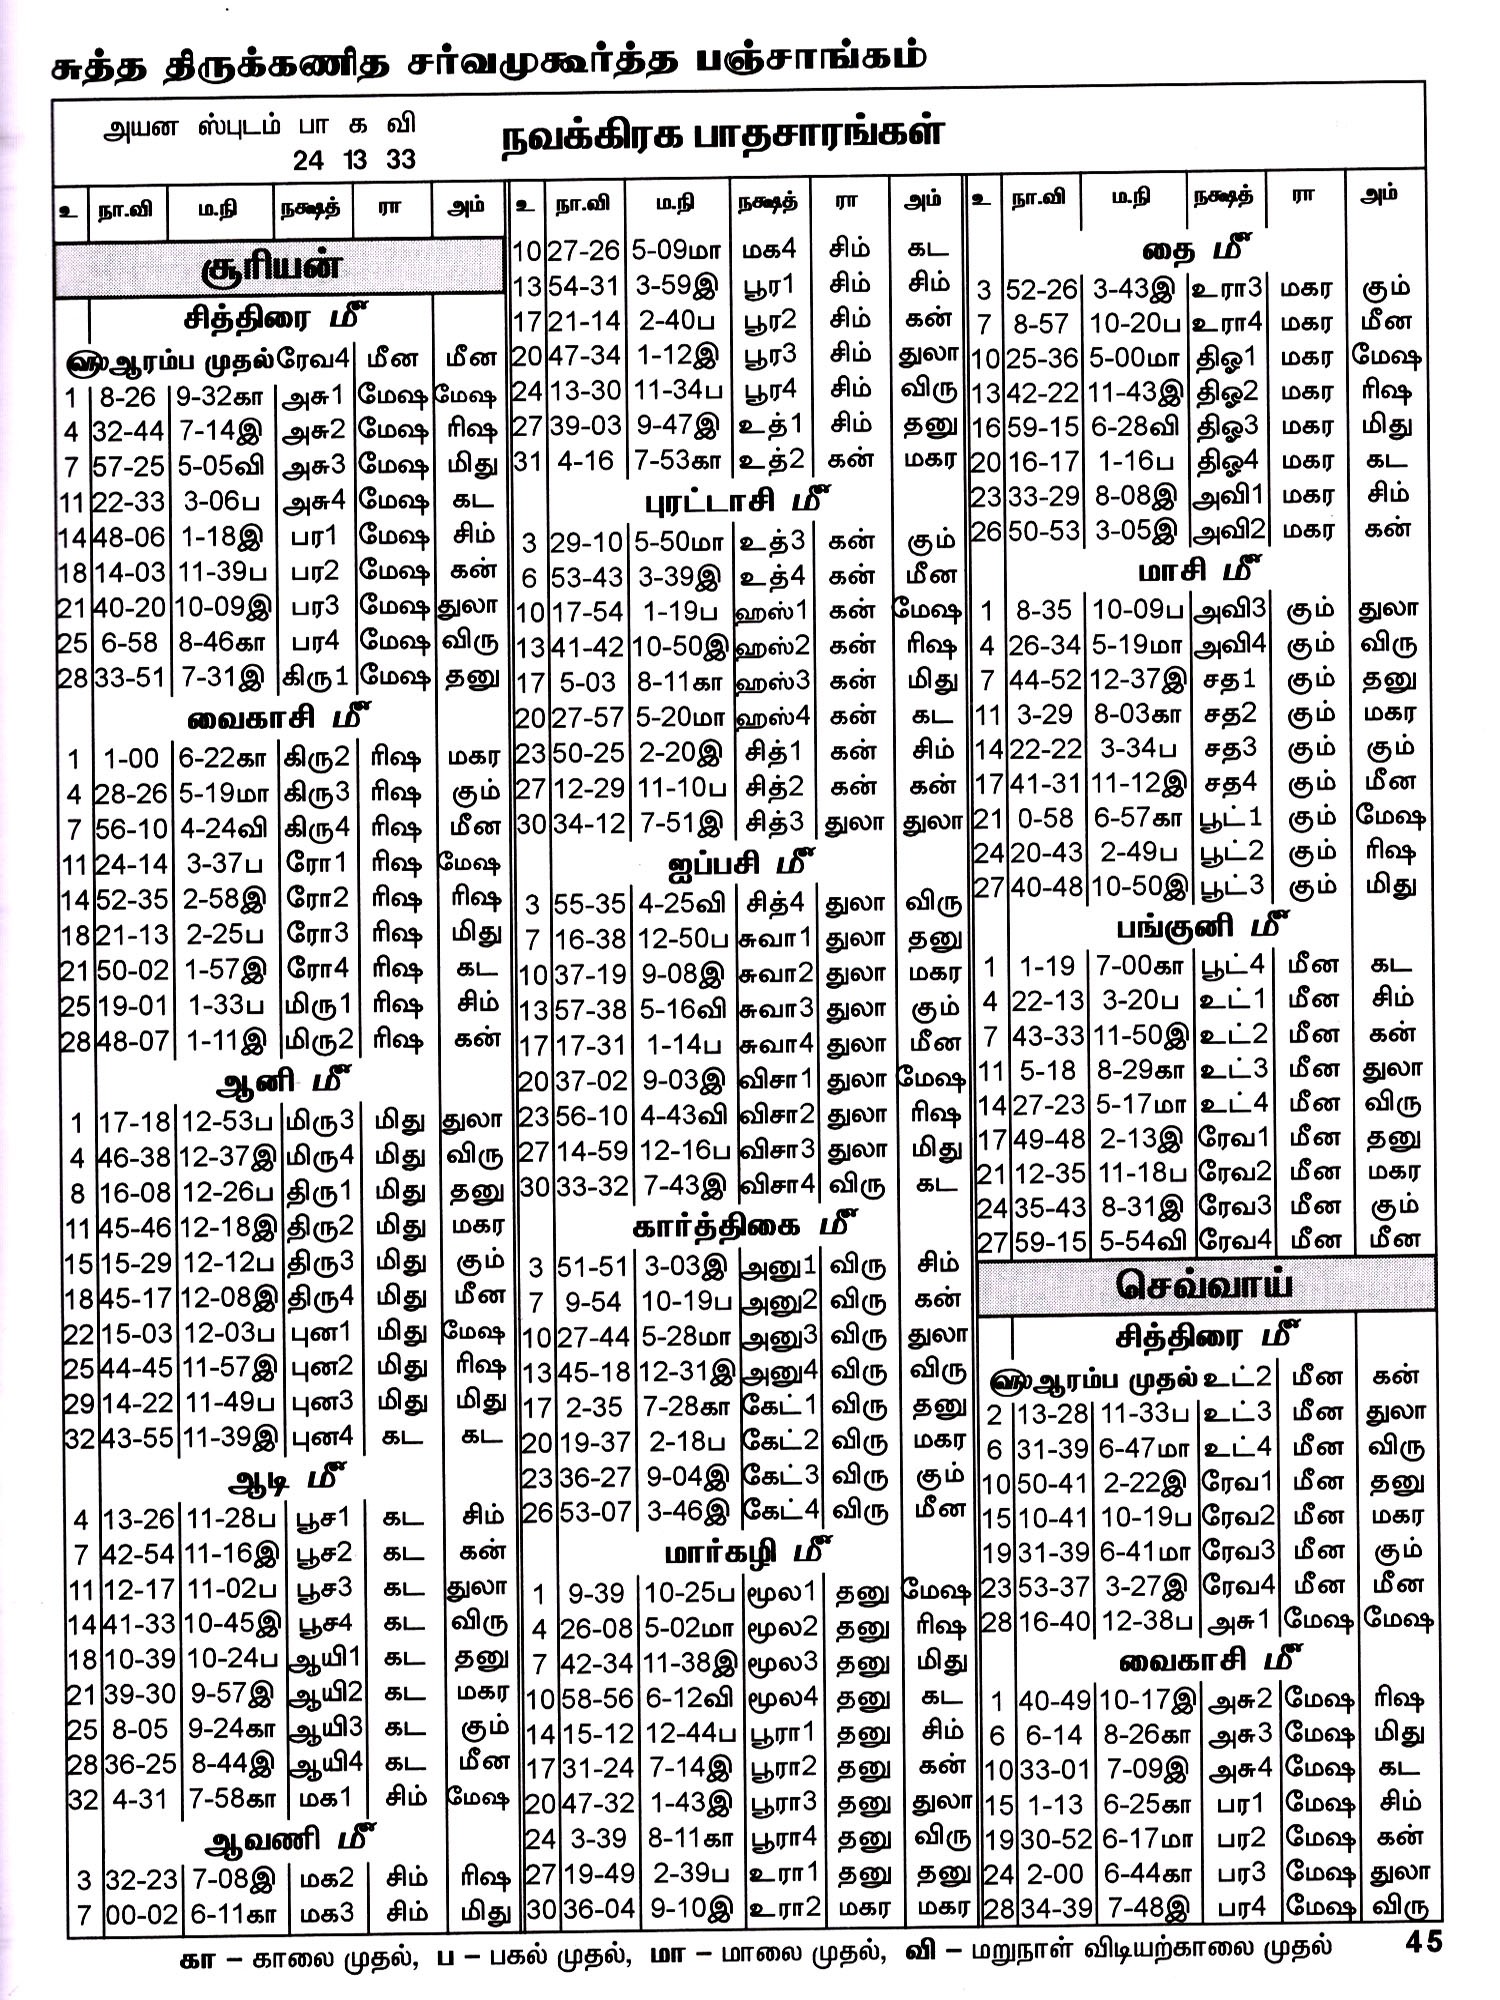 சுத்த திருக்கணித சர்வமுகூர்த்த பஞ்சாங்கம்
அயன ஸ்புடம் பா க வி
24 13 33
நவக்கிரக பாதசாரங்கள்
உ நா.வி ம.நி நக்ஷத் ரா அம்
சூரியன்
சித்திரை மீ
ஆரம்ப முதல் ரேவ4 மீன மீன
1 8-26 9-32கா அசு1 மேஷ மேஷ
4 32-44 7-14இ அசு2 மேஷ ரிஷ
7 57-25 5-05வி அசு3 மேஷ மிது
11 22-33 3-06ப அசு4 மேஷ கட
14 48-06 1-18இ பர1 மேஷ சிம்
18 14-03 11-39ப பர2 மேஷ கன்
21 40-20 10-09இ பர3 மேஷ துலா
25 6-58 8-46கா பர4 மேஷ விரு
28 33-51 7-31இ கிரு1 மேஷ தனு
வைகாசி மீ
1 1-00 6-22கா கிரு2 ரிஷ மகர
4 28-26 5-19மா கிரு3 ரிஷ கும்
7 56-10 4-24வி கிரு4 ரிஷ மீன
11 24-14 3-37ப ரோ1 ரிஷ மேஷ
14 52-35 2-58இ ரோ2 ரிஷ ரிஷ
18 21-13 2-25ப ரோ3 ரிஷ மிது
21 50-02 1-57இ ரோ4 ரிஷ கட
25 19-01 1-33ப மிரு1 ரிஷ சிம்
28 48-07 1-11இ மிரு2 ரிஷ கன்
ஆனி மீ
1 17-18 12-53ப மிரு3 மிது துலா
4 46-38 12-37இ மிரு4 மிது விரு
8 16-08 12-26ப திரு1 மிது தனு
11 45-46 12-18இ திரு2 மிது மகர
15 15-29 12-12ப திரு3 மிது கும்
18 45-17 12-08இ திரு4 மிது மீன
22 15-03 12-03ப புன1 மிது மேஷ
25 44-45 11-57இ புன2 மிது ரிஷ
29 14-22 11-49ப புன3 மிது மிது
32 43-55 11-39இ புன4 கட கட
ஆடி மீ
4 13-26 11-28ப பூச1 கட சிம்
7 42-54 11-16இ பூச2 கட கன்
11 12-17 11-02ப பூச3 கட துலா
14 41-33 10-45இ பூச4 கட விரு
18 10-39 10-24ப ஆயி1 கட தனு
21 39-30 9-57இ ஆயி2 கட மகர
25 8-05 9-24கா ஆயி3 கட கும்
28 36-25 8-44இ ஆயி4 கட மீன
32 4-31 7-58கா மக1 சிம் மேஷ
ஆவணி மீ
3 32-23 7-08இ மக2 சிம் ரிஷ
7 00-02 6-11கா மக3 சிம் மிது
உ நா.வி ம.நி நக்ஷத் ரா அம்
10 27-26 5-09மா மக4 சிம் கட
13 54-31 3-59இ பூர1 சிம் சிம்
17 21-14 2-40ப பூர2 சிம் கன்
20 47-34 1-12இ பூர3 சிம் துலா
24 13-30 11-34ப பூர4 சிம் விரு
27 39-03 9-47இ உத்1 சிம் தனு
31 4-16 7-53கா உத்2 கன் மகர
புரட்டாசி மீ
3 29-10 5-50மா உத்3 கன் கும்
6 53-43 3-39இ உத்4 கன் மீன
10 17-54 1-19ப ஹஸ்1 கன் மேஷ
13 41-42 10-50இ ஹஸ்2 கன் ரிஷ
17 5-03 8-11கா ஹஸ்3 கன் மிது
20 27-57 5-20மா ஹஸ்4 கன் கட
23 50-25 2-20இ சித்1 கன் சிம்
27 12-29 11-10ப சித்2 கன் கன்
30 34-12 7-51இ சித்3 துலா துலா
ஐப்பசி மீ
3 55-35 4-25வி சித்4 துலா விரு
7 16-38 12-50ப சுவா1 துலா தனு
10 37-19 9-08இ சுவா2 துலா மகர
13 57-38 5-16வி சுவா3 துலா கும்
17 17-31 1-14ப சுவா4 துலா மீன
20 37-02 9-03இ விசா1 துலா மேஷ
23 56-10 4-43வி விசா2 துலா ரிஷ
27 14-59 12-16ப விசா3 துலா மிது
30 33-32 7-43இ விசா4 விரு கட
கார்த்திகை மீ
3 51-51 3-03இ அனு1 விரு சிம்
7 9-54 10-19ப அனு2 விரு கன்
10 27-44 5-28மா அனு3 விரு துலா
13 45-18 12-31இ அனு4 விரு விரு
17 2-35 7-28கா கேட்1 விரு தனு
20 19-37 2-18ப கேட்2 விரு மகர
23 36-27 9-04இ கேட்3 விரு கும்
26 53-07 3-46இ கேட்4 விரு மீன
மார்கழி மீ
1 9-39 10-25ப மூல1 தனு மேஷ
4 26-08 5-02மா மூல2 தனு ரிஷ
7 42-34 11-38இ மூல3 தனு மிது
10 58-56 6-12வி மூல4 தனு கட
14 15-12 12-44ப பூரா1 தனு சிம்
17 31-24 7-14இ பூரா2 தனு கன்
20 47-32 1-43இ பூரா3 தனு துலா
24 3-39 8-11கா பூரா4 தனு விரு
27 19-49 2-39ப உரா1 தனு தனு
30 36-04 9-10இ உரா2 மகர மகர
உ நா.வி ம.நி நக்ஷத் ரா அம்
தை மீ
3 52-26 3-43இ உரா3 மகர கும்
7 8-57 10-20ப உரா4 மகர மீன
10 25-36 5-00மா திஓ1 மகர மேஷ
13 42-22 11-43இ திஓ2 மகர ரிஷ
16 59-15 6-28வி திஓ3 மகர மிது
20 16-17 1-16ப திஓ4 மகர கட
23 33-29 8-08இ அவி1 மகர சிம்
26 50-53 3-05இ அவி2 மகர கன்
மாசி மீ
1 8-35 10-09ப அவி3 கும் துலா
4 26-34 5-19மா அவி4 கும் விரு
7 44-52 12-37இ சத1 கும் தனு
11 3-29 8-03கா சத2 கும் மகர
14 22-22 3-34ப சத3 கும் கும்
17 41-31 11-12இ சத4 கும் மீன
21 0-58 6-57கா பூட்1 கும் மேஷ
24 20-43 2-49ப பூட்2 கும் ரிஷ
27 40-48 10-50இ பூட்3 கும் மிது
பங்குனி மீ
1 1-19 7-00கா பூட்4 மீன கட
4 22-13 3-20ப உட்1 மீன சிம்
7 43-33 11-50இ உட்2 மீன கன்
11 5-18 8-29கா உட்3 மீன துலா
14 27-23 5-17மா உட்4 மீன விரு
17 49-48 2-13இ ரேவ1 மீன தனு
21 12-35 11-18ப ரேவ2 மீன மகர
24 35-43 8-31இ ரேவ3 மீன கும்
27 59-15 5-54வி ரேவ4 மீன மீன
செவ்வாய்
சித்திரை மீ
ஆரம்ப முதல் உட்2 மீன கன்
2 13-28 11-33ப உட்3 மீன துலா
6 31-39 6-47மா உட்4 மீன விரு
10 50-41 2-22இ ரேவ1 மீன தனு
15 10-41 10-19ப ரேவ2 மீன மகர
19 31-39 6-41மா ரேவ3 மீன கும்
23 53-37 3-27இ ரேவ4 மீன மீன
28 16-40 12-38ப அசு1 மேஷ மேஷ
வைகாசி மீ
1 40-49 10-17இ அசு2 மேஷ ரிஷ
6 6-14 8-26கா அசு3 மேஷ மிது
10 33-01 7-09இ அசு4 மேஷ கட
15 1-13 6-25கா பர1 மேஷ சிம்
19 30-52 6-17மா பர2 மேஷ கன்
24 2-00 6-44கா பர3 மேஷ துலா
28 34-39 7-48இ பர4 மேஷ விரு
கா – காலை முதல், ப – பகல் முதல், மா – மாலை முதல், வி – மறுநாள் விடியற்காலை முதல் 45